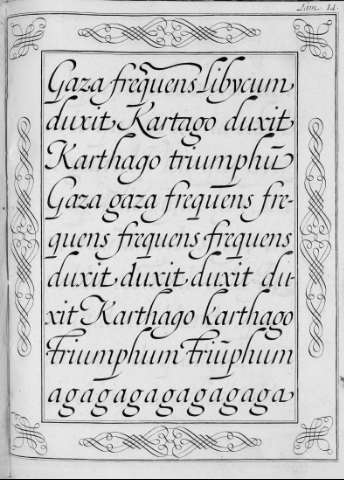 Lam. 14.
Gaza frequens libycum
duxit Kartago duxit
Karthago triumphū
Gaza gaza frequens fre-
quens frequens frequens
duxit duxit duxit du-
xit Karthago karthago
Triumphum Triūphum
agagagagagagaga